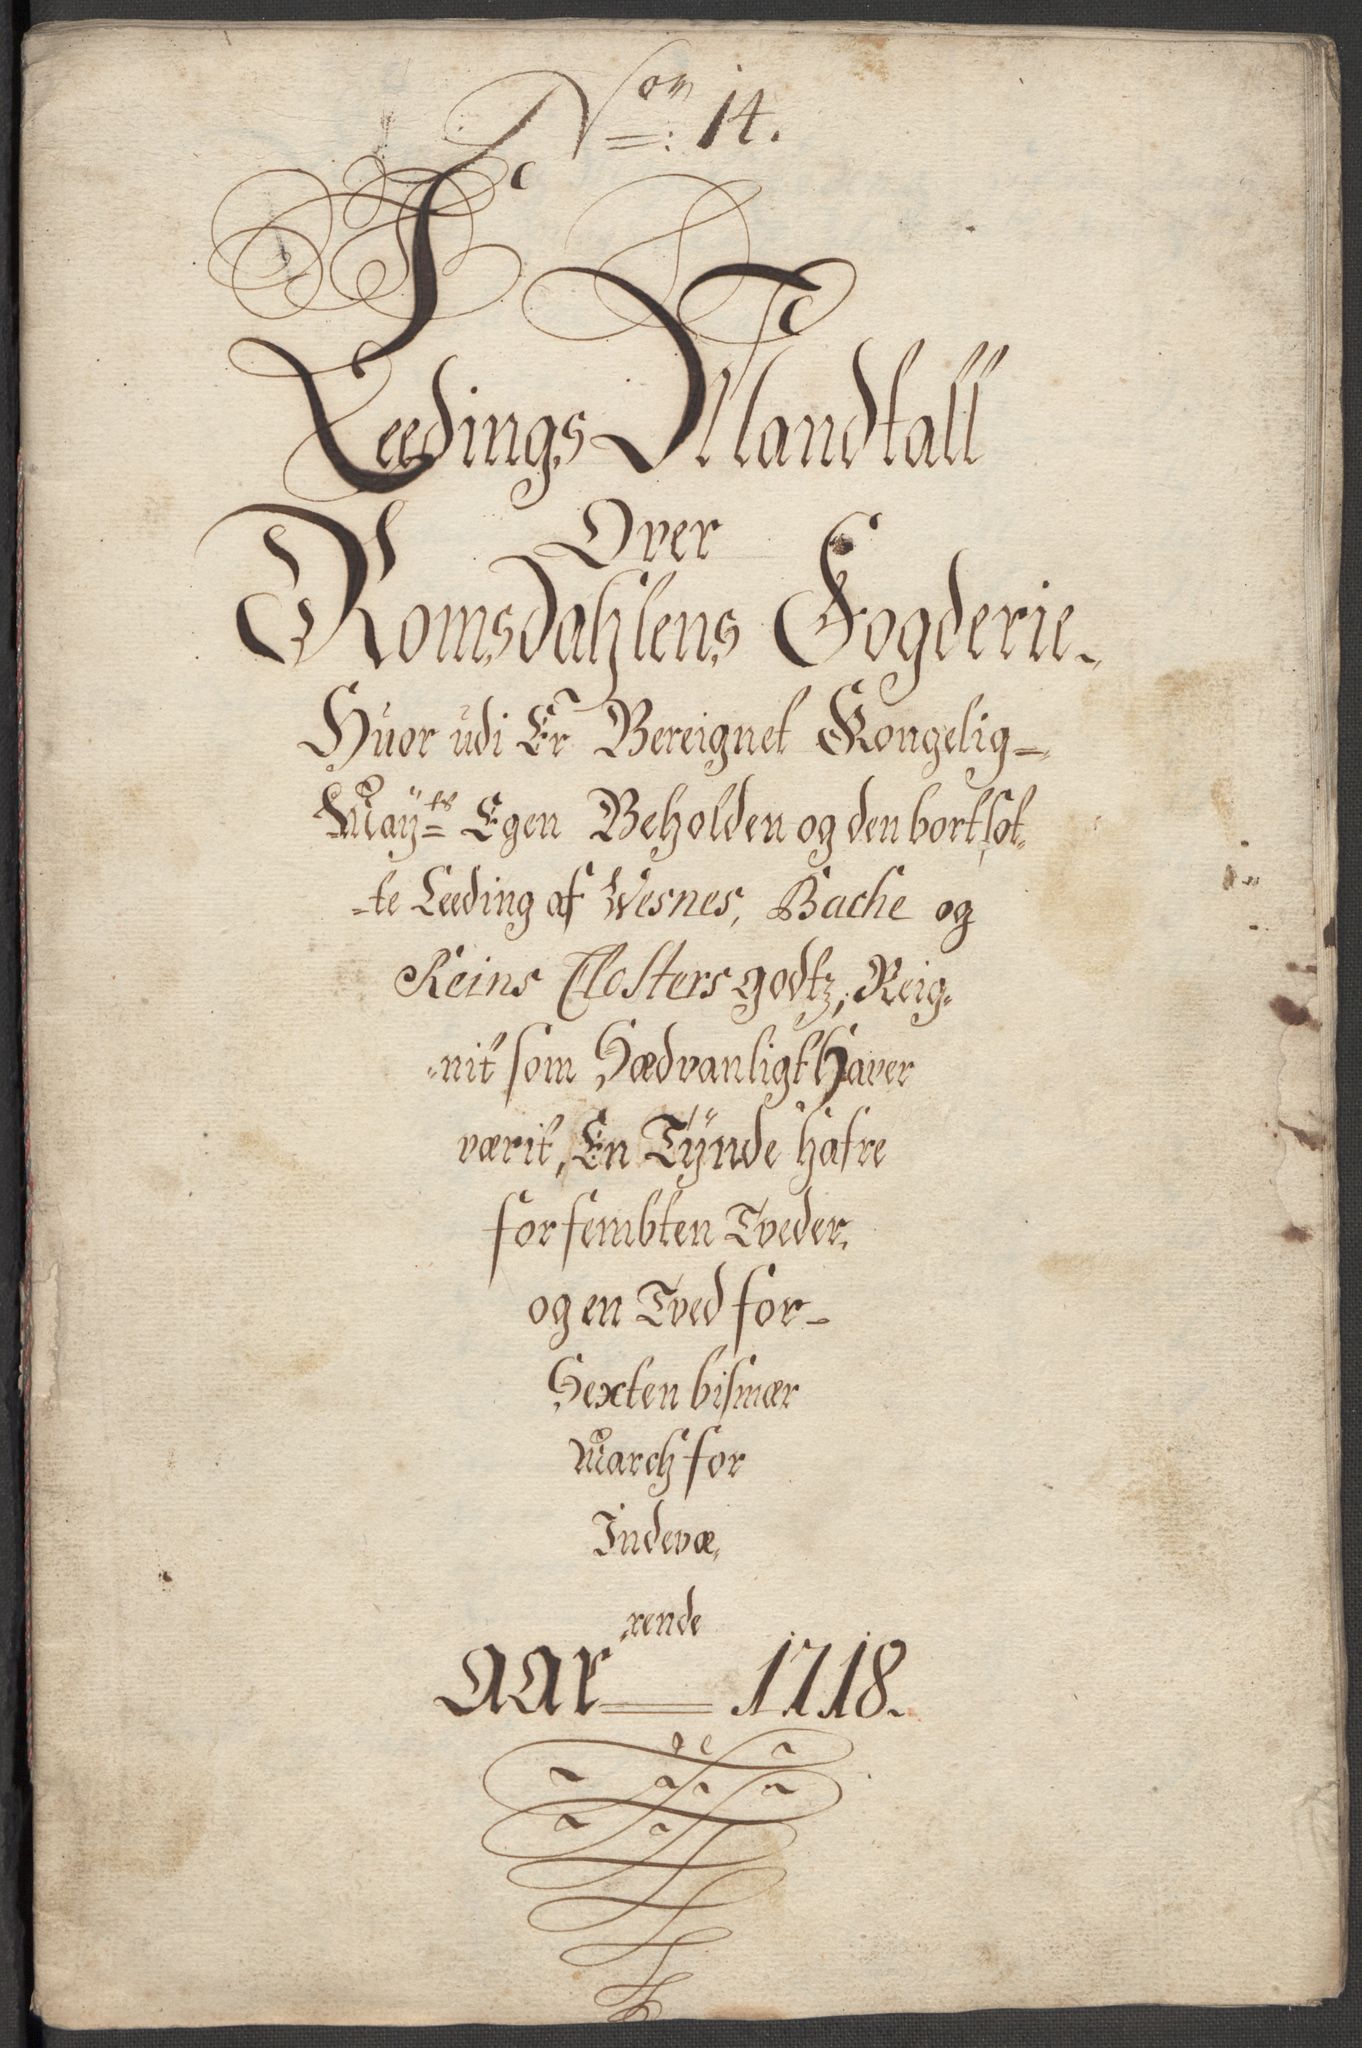 Nom: 14.
Leedings Mandtall
Over
Romsdahlens Fogderie.
Huor udi Er Bereignet Kongelig
Maytts Egen Beholden og den bortsolt-
-te Leeding af Wesnes, Bache og
Reins Closters godtz, Reig-
-nit som Sædvanligt Haver
værit, En Tÿnde hafre
for fembten Tveder,
og en Tved for
Sexten bismær
March for
Indevæ-
-rende
AAR 1718.